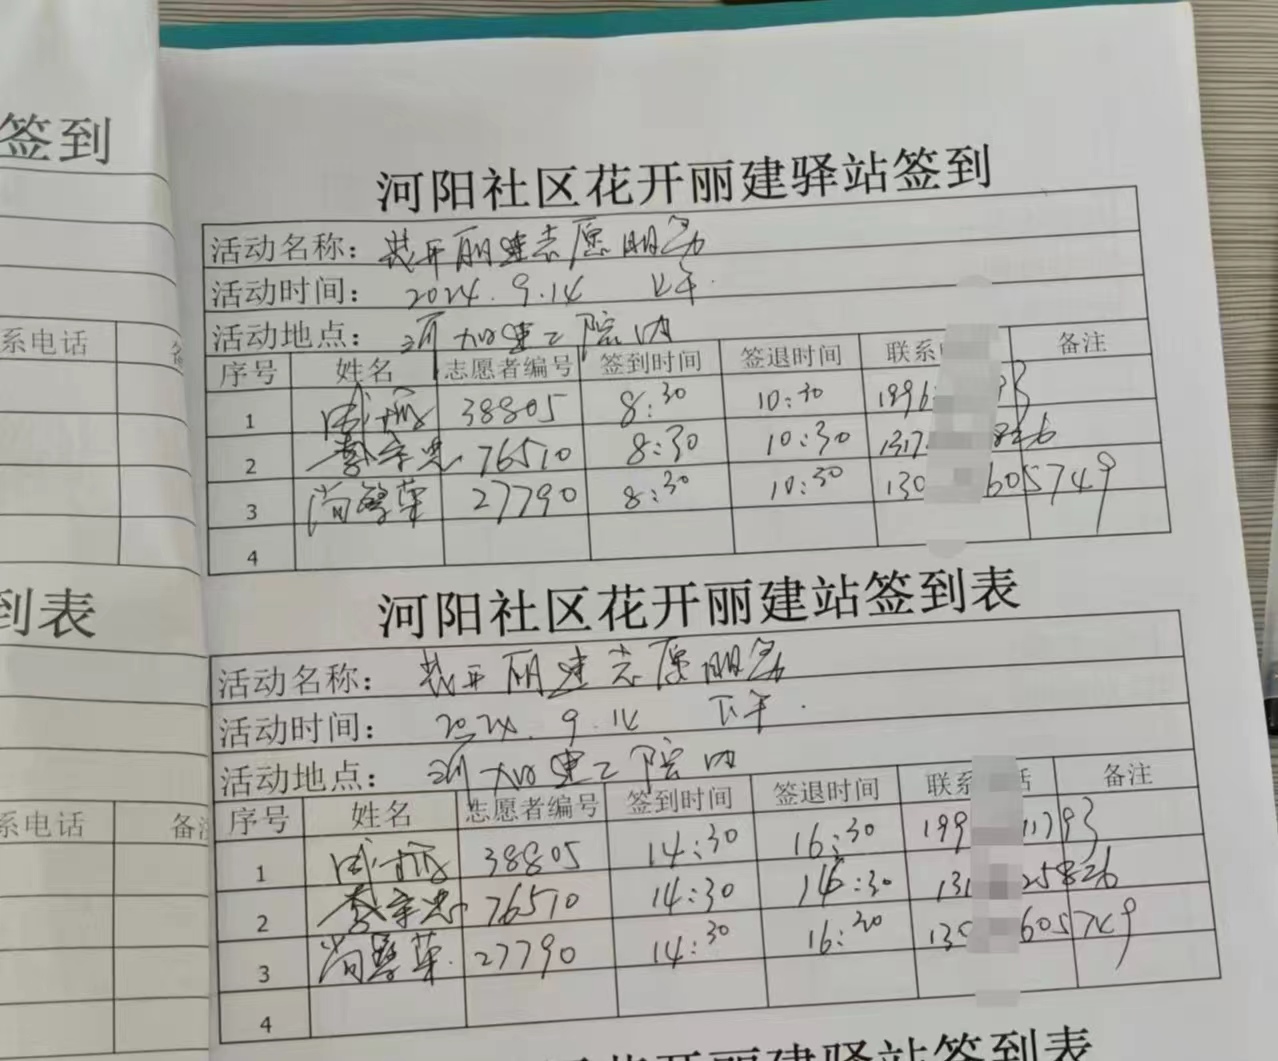 签到
系电话
到表
系电话 备
河阳社区花开丽建驿站签到
活动名称： 花开丽建志愿服务
活动时间： 2024.9.14 上午.
活动地点： 建工院内
序号 姓名 志愿者编号 签到时间 签退时间 联系 备注
1 38805 8:30 10:30 1996 93
2 76510 8:30 10:30 1317 826
3 27790 8:30 10:30 130 605749
4
河阳社区花开丽建站签到表
活动名称： 花开丽建志愿服务
活动时间： 2024.9.14 下午.
活动地点： 建工院内
序号 姓名 志愿者编号 签到时间 签退时间 联系 话 备注
1 38805 14:30 16:30 199 1793
2 76510 14:30 16:30 131 25826
3 27790 14:30 16:30 130 605749
4
花开丽建驿站签到表